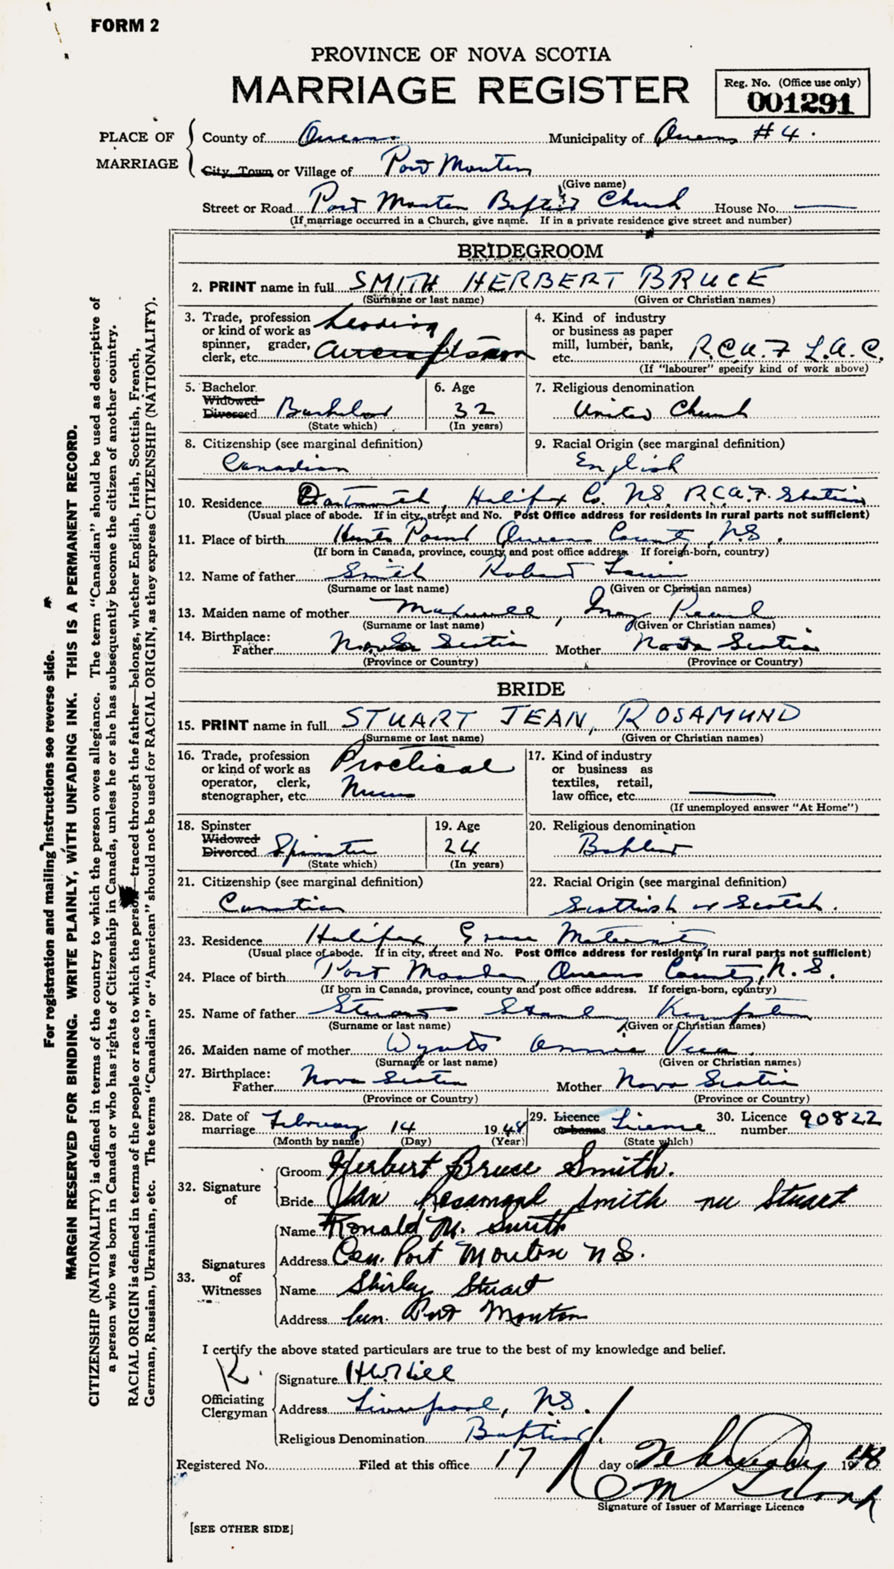 FORM 2
PROVINCE OF NOVA SCOTIA
MARRIAGE REGISTER
Reg. No. (Office use only)
001291
PLACE OF MARRIAGE
County of Queens Municipality of Queens #4.
City, Town or Village of Port Mouton
(Give name)
Street or Road Port Mouton Baptist Church House No.
(If marriage occurred in a Church, give name. If in a private residence give street and number)
BRIDEGROOM
2. PRINT name in full SMITH HERBERT BRUCE
(Surname or last name) (Given or Christian names)
3. Trade, profession or kind of work as spinner, grader, clerk, etc. Leading Aircraftsman
4. Kind of industry or business as paper mill, lumber, bank, etc. R.C.A.F L.A.C.
(If "labourer" specify kind of work above)
5. Bachelor Widowed Divorced Bachelor
(State which)
6. Age 32
(In years)
7. Religious denomination
United Church
8. Citizenship (see marginal definition)
Canadian
9. Racial Origin (see marginal definition)
English
10. Residence Dartmouth, Halifax Co. NS R.C.A.F. Station
(Usual place of abode. If in city, street and No. Post Office address for residents in rural parts not sufficient)
11. Place of birth Hunts Point Queens County, N.S.
(If born in Canada, province, county and post office address. If foreign-born, country)
12. Name of father Smith Robert
(Surname or last name) (Given or Christian names)
13. Maiden name of mother , Pearl
(Surname or last name) (Given or Christian names)
14. Birthplace: Father Nova Scotia Mother Nova Scotia
(Province or Country) (Province or Country)
BRIDE
15. PRINT name in full STUART JEAN, ROSAMUND
(Surname or last name) (Given or Christian names)
16. Trade, profession or kind of work as operator, clerk, stenographer, etc. Practical Nurse
17. Kind of industry or business as textiles, retail, law office, etc.
(If unemployed answer "At Home")
18. Spinster Widowed Divorced Spinster
(State which)
19. Age 24
(In years)
20. Religious denomination
Baptist
21. Citizenship (see marginal definition)
Canadian
22. Racial Origin (see marginal definition)
Scottish or Scotch.
23. Residence Halifax Grace Maternity
(Usual place of abode. If in city, street and No. Post Office address for residents in rural parts not sufficient)
24. Place of birth Port Mouton, Queens County, N.S.
(If born in Canada, province, county and post office address. If foreign-born, country)
25. Name of father Stuart Stanley Kempton
(Surname or last name) (Given or Christian names)
26. Maiden name of mother Annie
(Surname or last name) (Given or Christian names)
27. Birthplace: Father Nova Scotia Mother Nova Scotia
(Province or Country) (Province or Country)
28. Date of marriage February 14 1948
(Month by name) (Day) (Year)
29. Licence or banns License
(State which)
30. Licence number 90822
32. Signature of
Groom Herbert Bruce Smith.
Bride Jean Rosamond Smith nee Stuart
33. Signatures of Witnesses
Name Ronald M. Smith
Address Cen. Port Mouton N S.
Name Shirley Stuart
Address Cen. Port Mouton
I certify the above stated particulars are true to the best of my knowledge and belief.
Officiating Clergyman
Signature
Address Liverpool, N.S.
Religious Denomination Baptist
Registered No. Filed at this office 17 day of February 1948
Signature of Issuer of Marriage Licence
[SEE OTHER SIDE]
For registration and mailing instructions see reverse side.
MARGIN RESERVED FOR BINDING. WRITE PLAINLY, WITH UNFADING INK. THIS IS A PERMANENT RECORD.
CITIZENSHIP (NATIONALITY) is defined in terms of the country to which the person owes allegiance. The term "Canadian" should be used as descriptive of
a person who was born in Canada or who has rights of Citizenship in Canada, unless he or she has subsequently become the citizen of another country.
RACIAL ORIGIN is defined in terms of the people or race to which the person—traced through the father—belongs, whether English, Irish, Scottish, French,
German, Russian, Ukrainian, etc. The terms "Canadian" or "American" should not be used for RACIAL ORIGIN, as they express CITIZENSHIP (NATIONALITY).